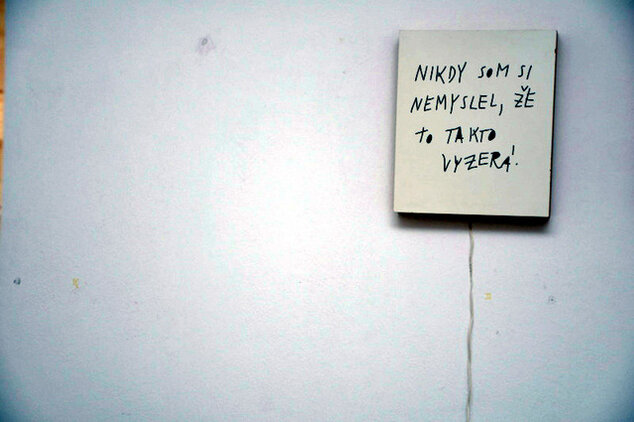 NIKDY SOM SI
NEMYSLEL, ŽE
TO TAKTO
VYZERÁ.